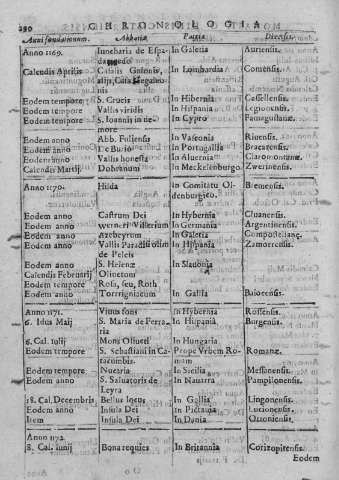 290 CHRONOLOGIA
Anni fundationum. Abbatiæ Patria Diœcesis.
Anno 1169. Iuncharia de Espa- In Galetia Auriensis.
Calendis Aprilis In Lombardia Comensis.
Eodem tempore S. Crucis In Hibernia Cassellensis.
Eodem tempore Vallis viridis In Hispania Legionensis.
Eodem tempore S. Ioannis in ne- In Cypro Famagustanæ.
more
Eodem anno Abb. Foliensis In Vasconia Rivensis.
Eodem anno De Burio In Portugallia Bracarensis.
Eodem anno Vallis honesta In Aluernia Claromontanæ.
Calendis Martij Dobranum In Meckelenburgo Zwerinensis.
Anno 1170. Hilda In Comitatu Ol- Bremensis.
denburgico
Eodem anno Castrum Dei In Hybernia Cluanensis.
Eodem anno werneri Villerium In Germania Argentinensis.
Eodem anno Azebeyrum In Galetia Compostellanæ.
Eodem anno Vallis Paradisi olim In Hispania Zamorrensis.
de Peleis
Eodem anno S. Helenæ In Slauonia
Calendis Februarij Oliuetum
Eodem tempore Rosa, seu, Roth
Eodem anno Torrigniacum In Gallia Baiocensis.
Anno 1171. Viuus fons In Hybernia Rossensis.
6. Idus Maij S. Maria de Ferra- In Hispania Burgensis.
ria
6. Cal. Iulij Mons Oliueti In Hungaria
Eodem tempore S. Sebastiani in Ca- Prope Vrbem Ro- Romanæ.
tacumbis mam
Eodem tempore Nucaria In Sicilia Messanensis.
Eodem anno S. Saluatoris de In Nauarra Pampilonensis.
Leyra
18. Cal. Decembris Bellus locus In Gallia Lingonensis.
Eodem anno Insula Dei In Pictauia Lucionensis.
Item Insula Dei In Dania Ottoniensis.
Anno 1172.
8. Cal. Iunij Bona requies In Britannia Corizopitensis.
Eodem